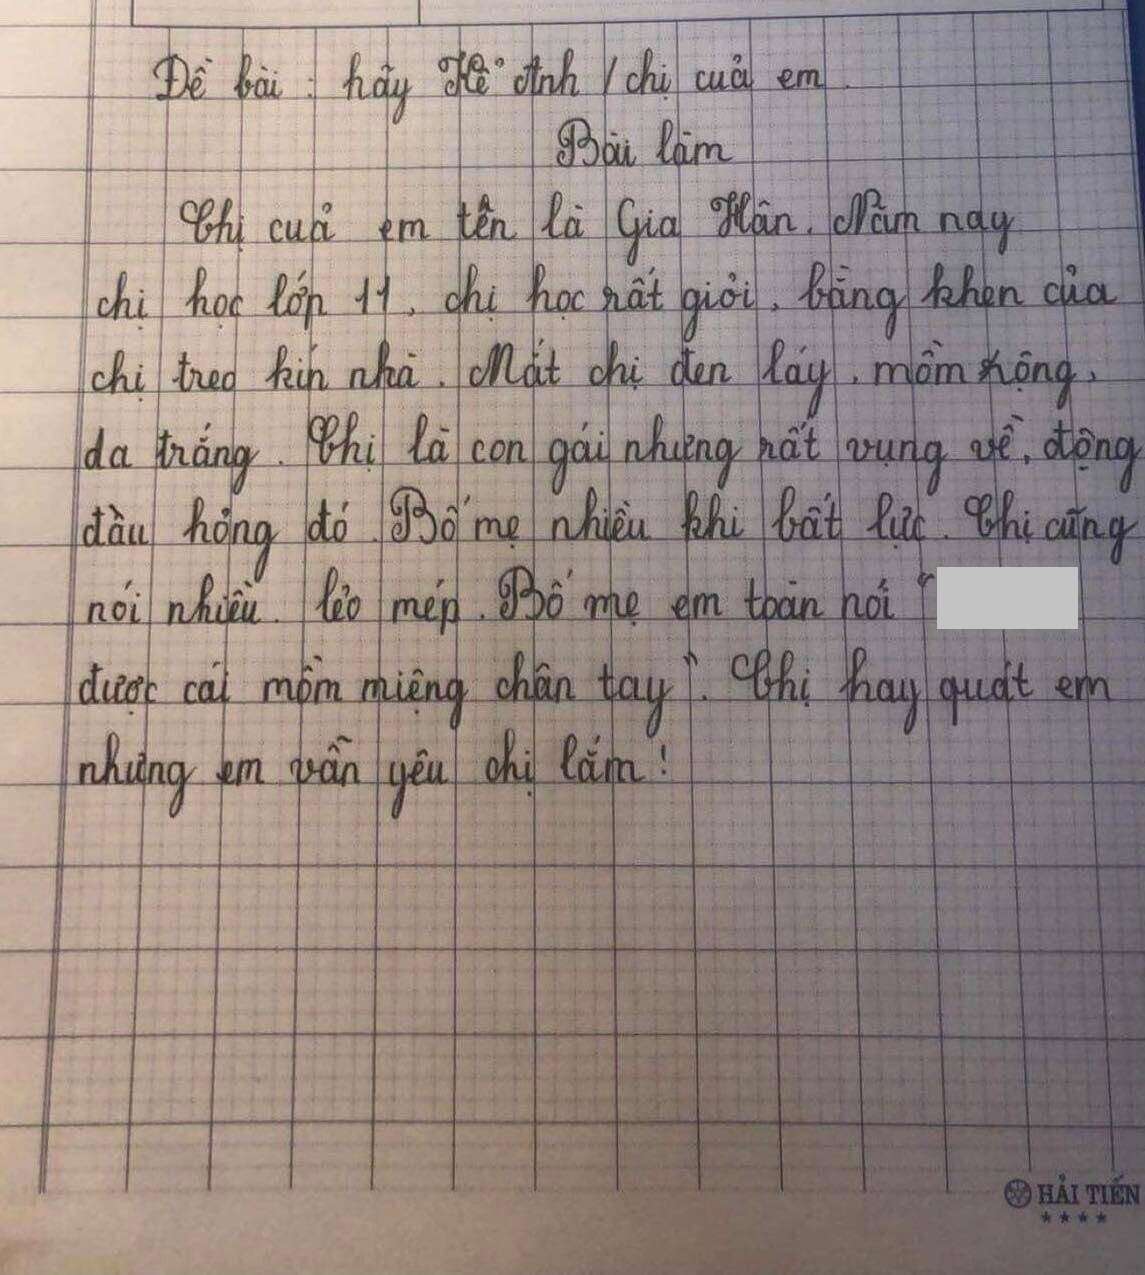 Đề bài : hãy Kể Anh / chị của em.
Bài làm
Chị cuả em tên là Gia Hân. Năm nay
chị học lớp 11, chị học rất giỏi, bằng khen của
chị treo kín nhà. Mắt chị đen láy, mồm rộng,
da trắng. Chị là con gái nhưng rất vụng về, động
đâu hỏng đó. Bố mẹ nhiều khi bất lực. Chị cũng
nói nhiều. lẻo mép. Bố mẹ em toàn nói "
được cái mồm miệng chân tay". Chị hay quát em
nhưng em vẫn yêu chị lắm!
HẢI TIẾN